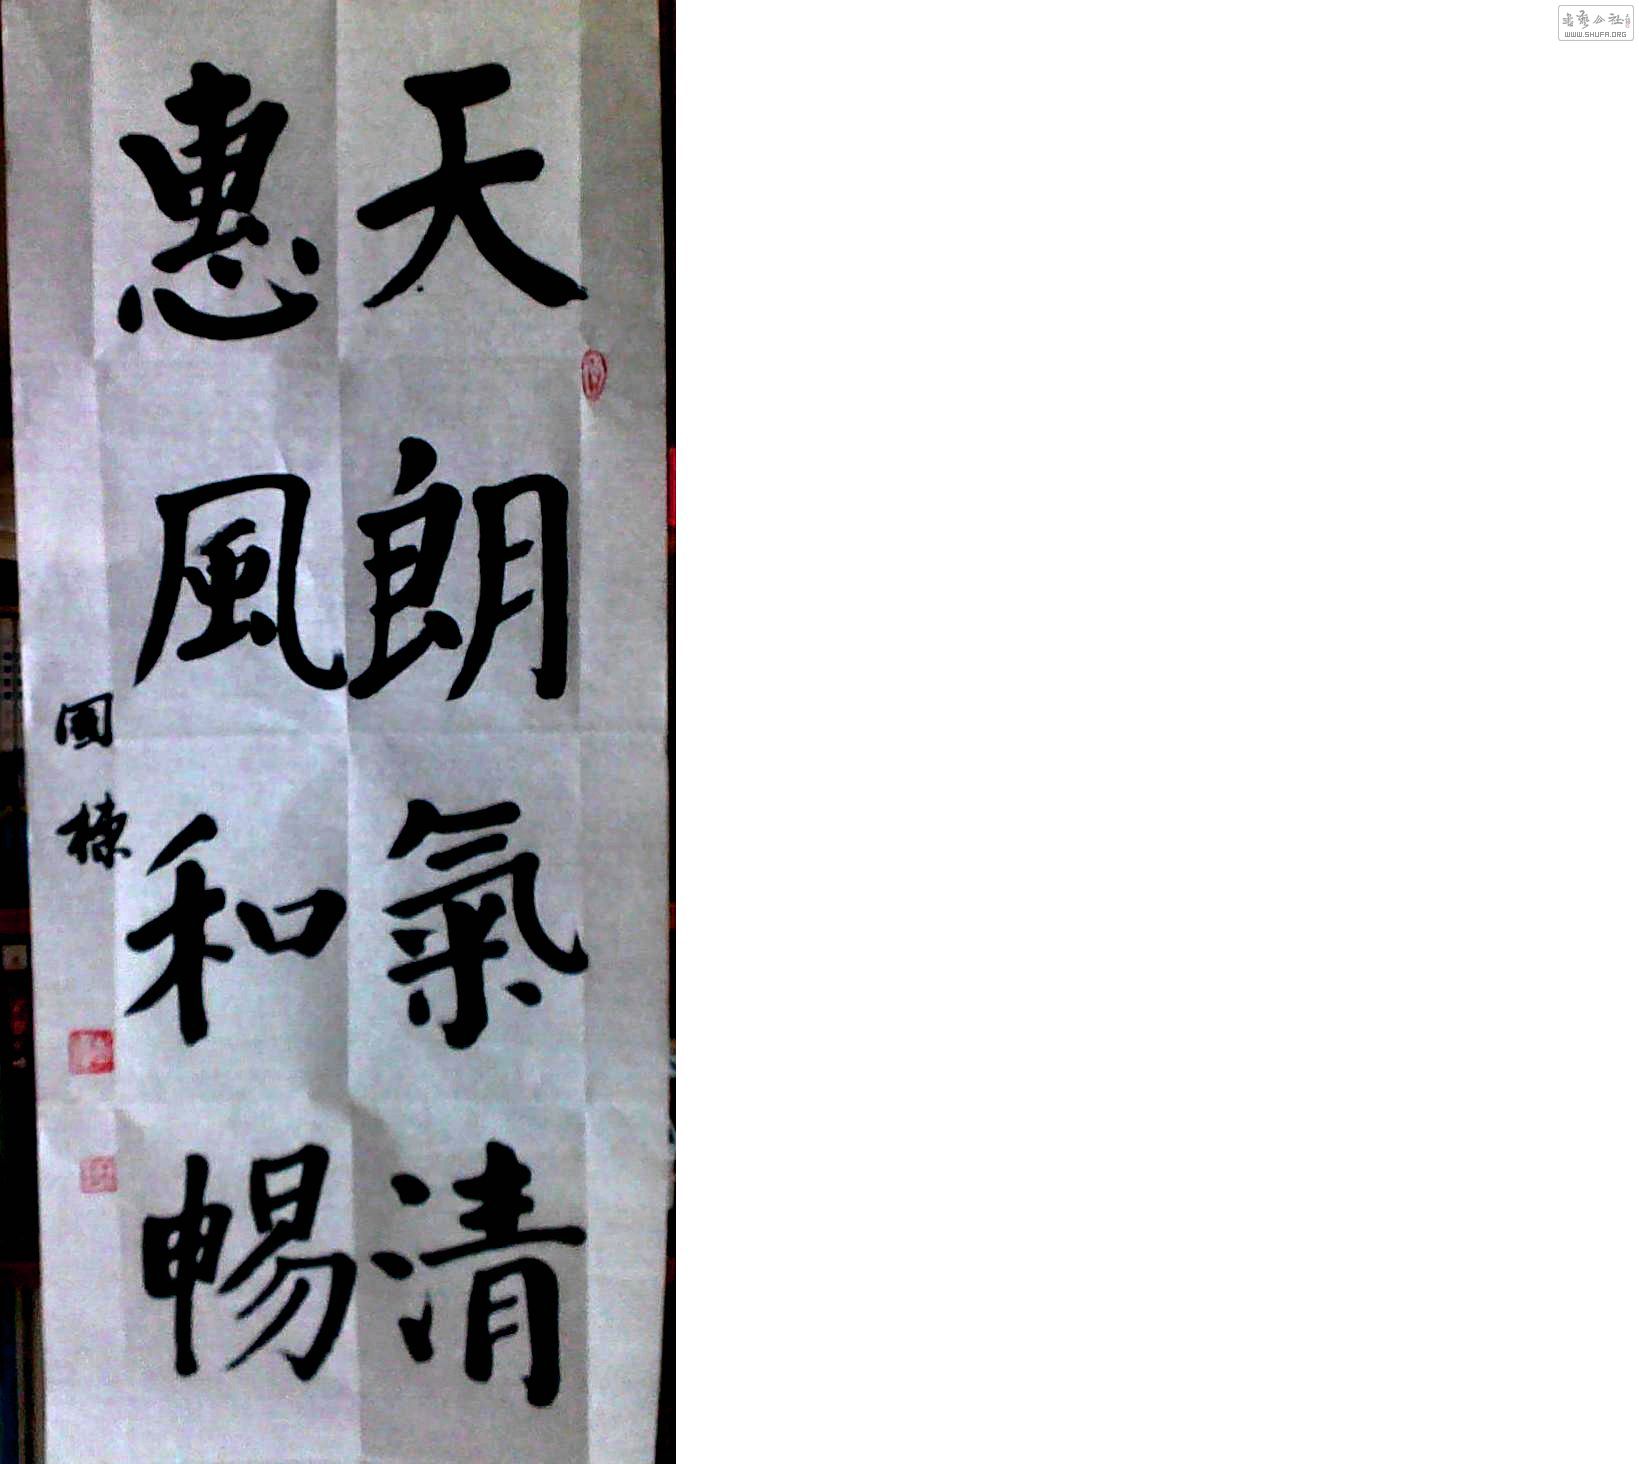 天朗氣清
惠風和暢
國棟
WWW.SHUFA.ORG